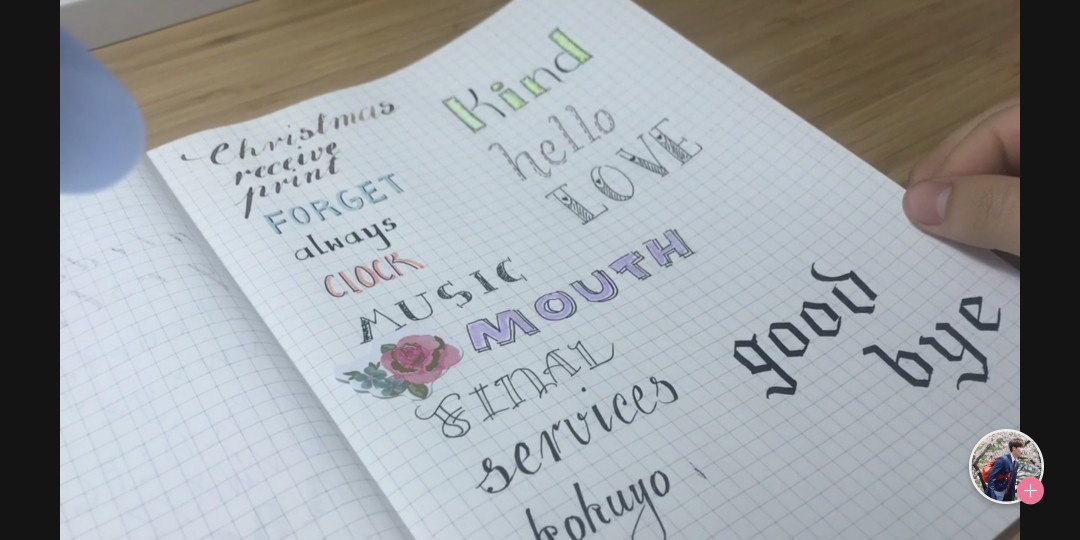 Christmas
receive
print
FORGET
always
CLOCK
MUSIC
Kind
hello
LOVE
MOUTH
FINAL
services
kokuyo
good
bye